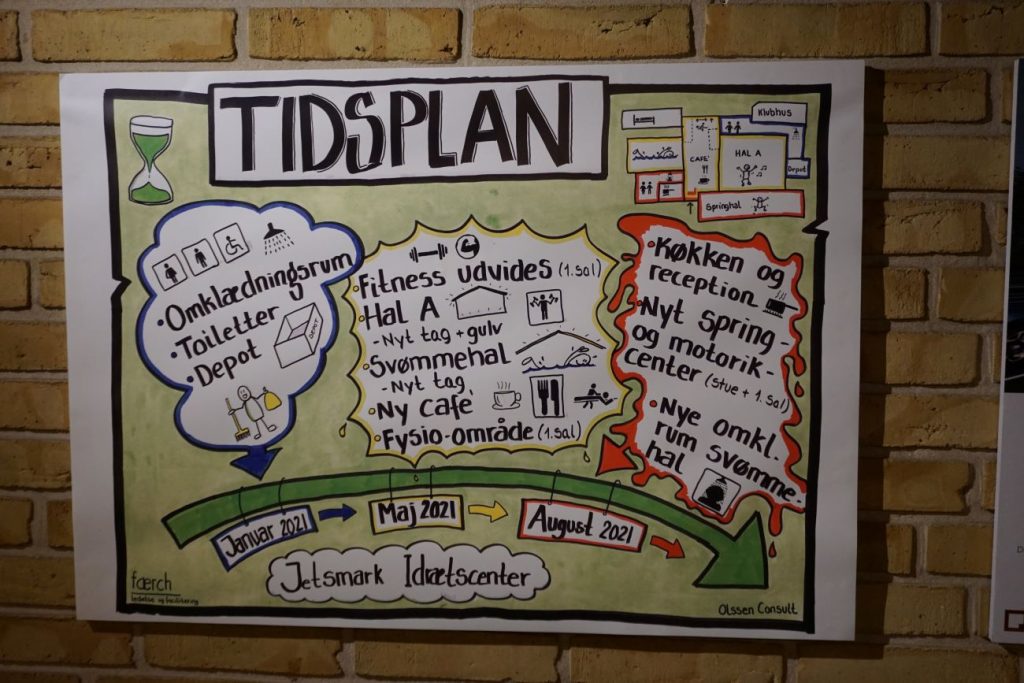 TIDSPLAN
Klubhus
CAFE'
HAL A
Depot
Springhal
• Omklædningsrum
• Toiletter
• Depot
DEPOT
• Fitness udvides (1. sal)
• Hal A
- Nyt tag + gulv
• Svømmehal
- Nyt tag
• Ny café
• Fysio-område (1. sal)
• Køkken og
reception
• Nyt spring-
og motorik-
center (stue + 1. sal)
• Nye omkl.
rum svømme-
hal
Januar 2021
Maj 2021
August 2021
Jetsmark Idrætscenter
færch
ledelse og facilitering
Olssen Consult